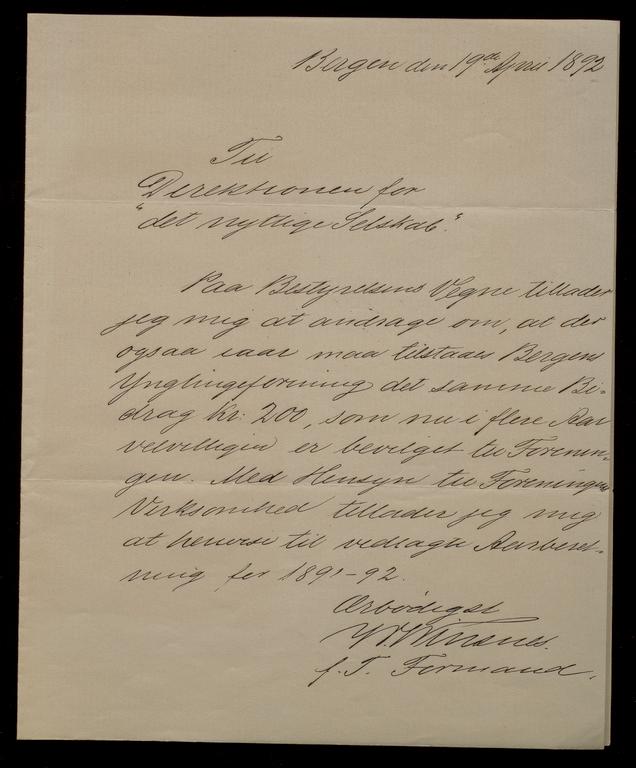 Bergen den 19de April 1892
Til
Direktionen for
"det nyttige Selskab".
Paa Bestyrelsens Vegne tillader
jeg mig at andrage om, at der
ogsaa iaar maa tilstaaes Bergens
Ynglingeforening det samme Bi-
drag Kr: 200, som nu i flere Aar
velvilligen er bevilget til Forenin-
gen. Med Hensyn til Foreningens
Virksomhed tillader jeg mig
at henvise til vedlagte Aarsberet-
ning for 1891-92.
Ærbødigst
Winsnes.
f. T. Formand.